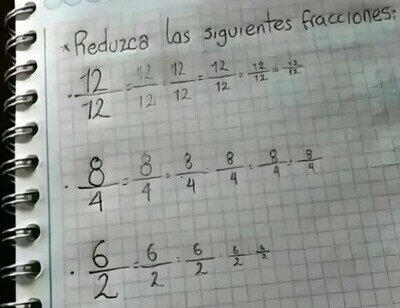 *Reduzca las siguientes fracciones:
· 12/12 = 12/12 = 12/12 = 12/12 = 12/12 = 12/12
· 8/4 = 8/4 = 8/4 = 8/4 = 8/4 = 8/4
· 6/2 = 6/2 = 6/2 = 6/2 = 6/2